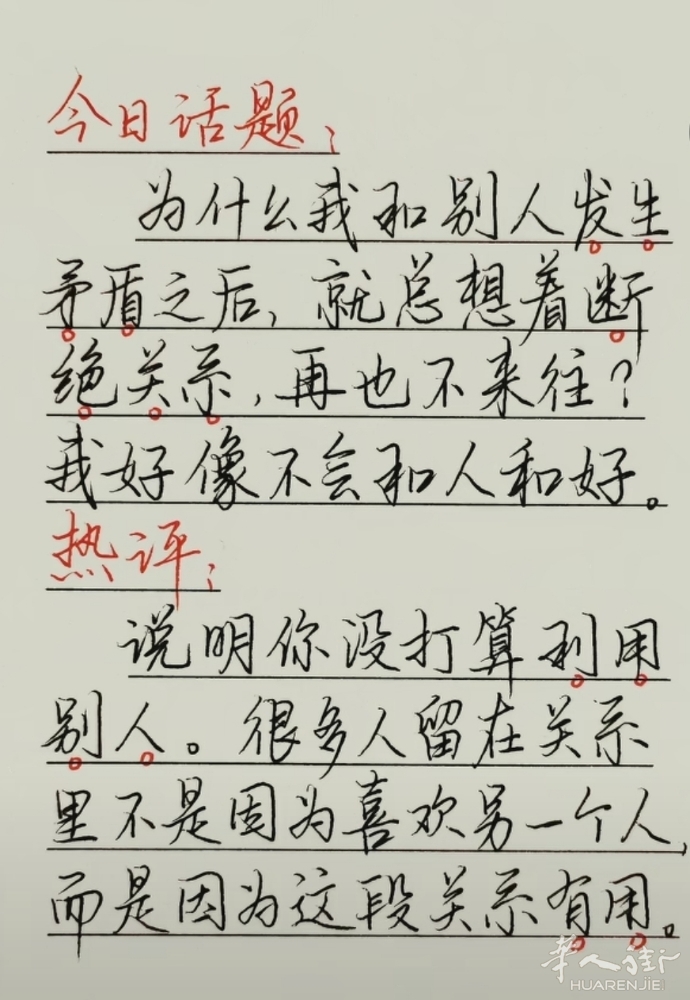 今日话题：
为什么我和别人发生
矛盾之后，就总想着断
绝关系，再也不来往？
我好像不会和人和好。
热评：
说明你没打算利用
别人。很多人留在关系
里不是因为喜欢另一个人，
而是因为这段关系有用。
华人街
HUARENJIE